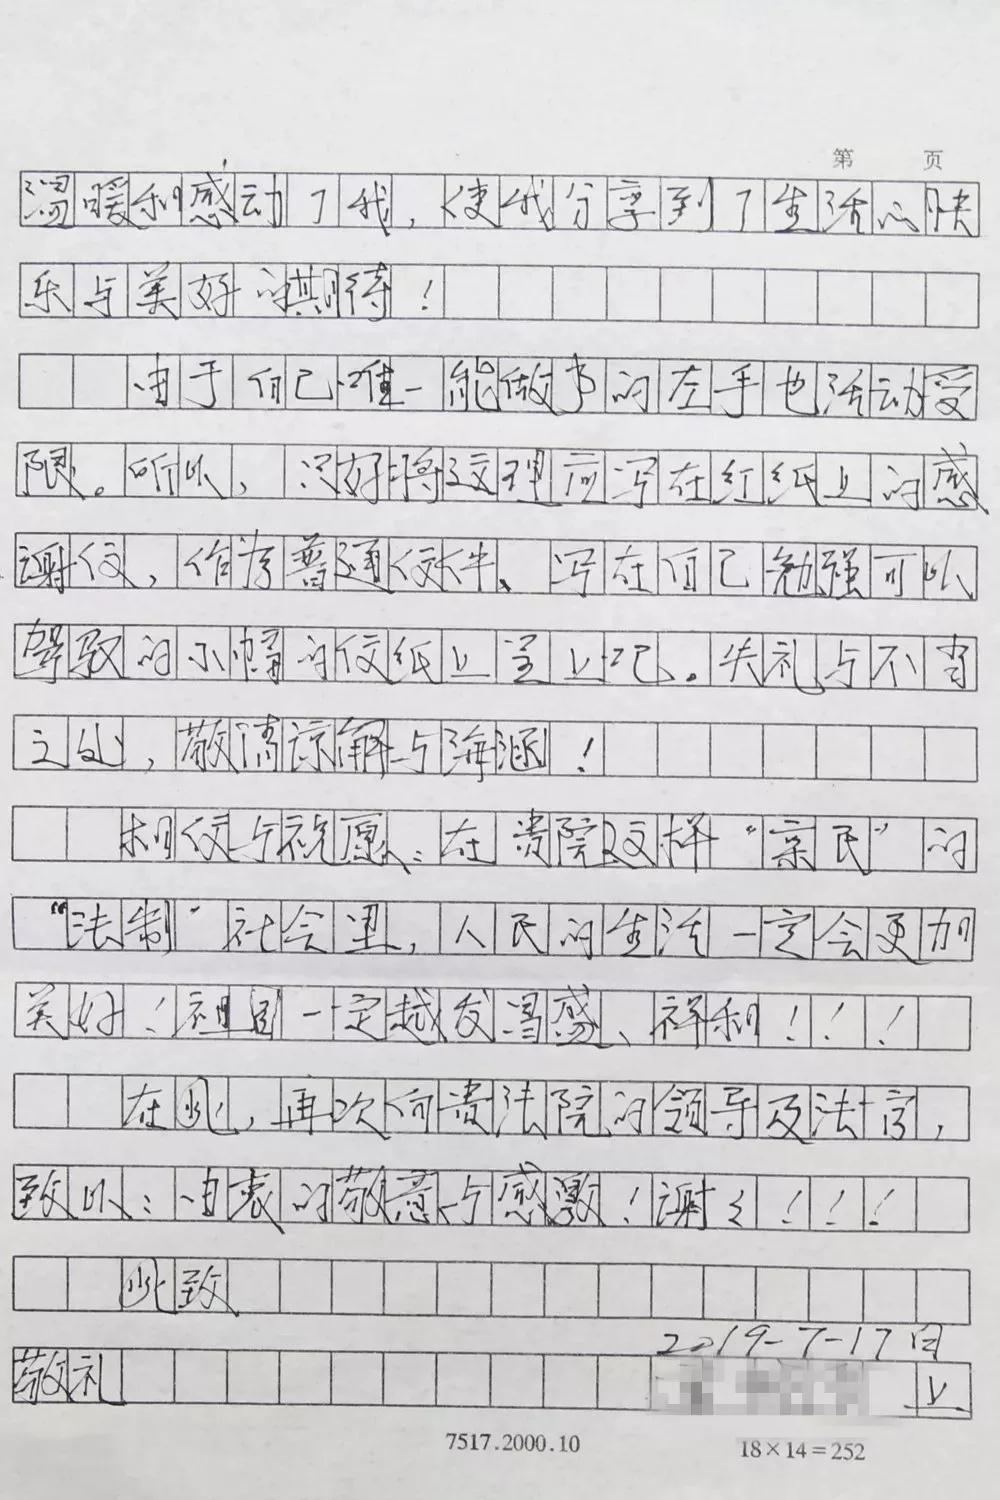 第 页
温暖和感动了我，使我分享到了生活的快
乐与美好的期待！
由于自己唯一能做事的左手也活动受
限。所以，只好将这理应写在红纸上的感
谢信，作为普通信件、写在自己勉强可以
驾驭的小幅的信纸上呈上吧。失礼与不当
之处，敬请谅解与海涵！
相信与祝愿：在贵院这样“亲民”的
“法制”社会里，人民的生活一定会更加
美好！祖国一定越发昌盛、祥和！！！
在此，再次向贵法院的领导及法官，
致以：由衷的敬意与感激！谢々！！！
此致
2019-7-17日
敬礼 上
7517.2000.10 18×14=252